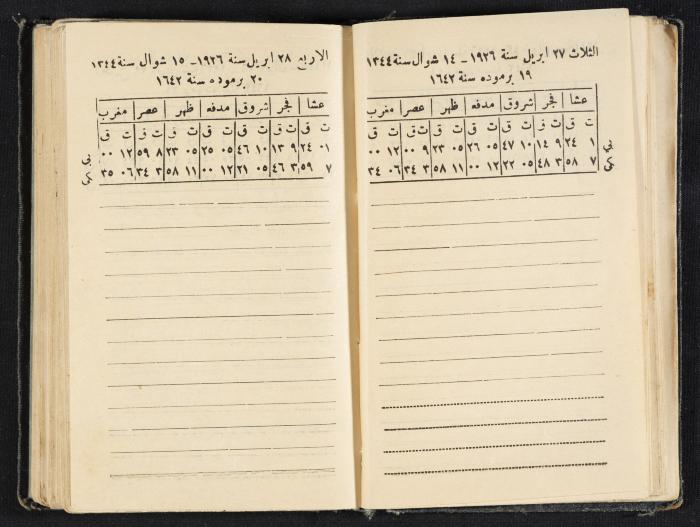 الثلاث ٢٧ ابريل سنة ١٩٢٦ – ١٤ شوال سنة ١٣٤٤
١٩ برموده سنة ١٦٤٢
عشا فجر شروق مدفه ظهر عصر مغرب
ت ق ت ق ت ق ت ق ت ق ت ق ت ق
١ ٢٤ ٩ ١٤ ١٠ ٤٧ ٠٥ ٢٦ ٠٥ ٢٣ ٩ ٠٠ ١٢ ٠٠
٧ ٥٨ ٣ ٤٨ ٠٥ ٢٢ ١٢ ٠٠ ١١ ٥٨ ٣ ٣٤ ٠٦ ٣٤
الاربع ٢٨ ابريل سنة ١٩٢٦ – ١٥ شوال سنة ١٣٤٤
٢٠ برموده سنة ١٦٤٢
عشا فجر شروق مدفه ظهر عصر مغرب
ت ق ت ق ت ق ت ق ت ق ت ق ت ق
٠١ ٢٤ ٩ ١٣ ١٠ ٤٦ ٠٥ ٢٥ ٠٥ ٢٣ ٨ ٥٩ ١٢ ٠٠
٧ ٥٩ ٣ ٤٦ ٠٥ ٢١ ١٢ ٠٠ ١١ ٥٨ ٣ ٣٤ ٠٦ ٣٥